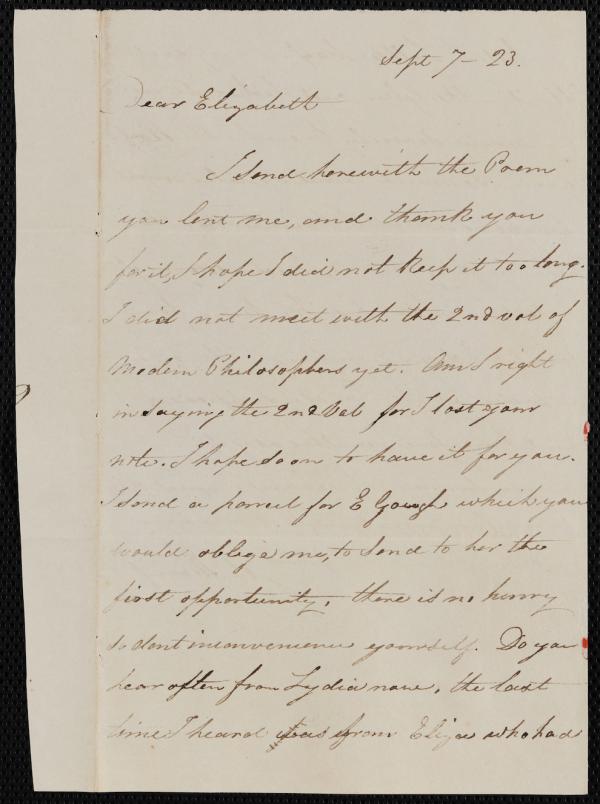 Sept 7 - 23.
Dear Elizabeth
I send herewith the Poem
you lent me, and thank you
for it, I hope I did not keep it too long.
I did not meet with the 2nd vol of
Modern Philosophers yet. Am I right
in saying the 2nd Vol for I lost your
note. I hope soon to have it for you.
I send a parcel for E Gough which you
would oblige me, to send to her the
first opportunity, there is no hurry
so dont inconvenience yourself. Do you
hear often from Lydia now, the last
time I heard was from Eliza who had